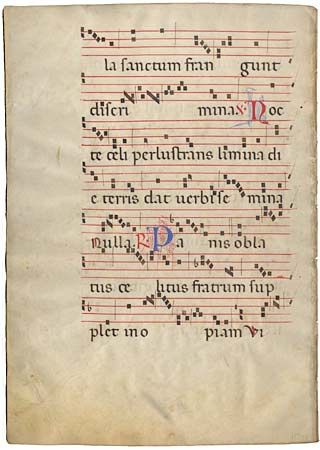 la sanctum fran gunt
discri mina. ℣. Noc
te celi perlustrans limina di
e terris dat verbi se mina
nulla. ℟. Pa nis obla
tus ce litus fratrum sup
plet ino piam Vi